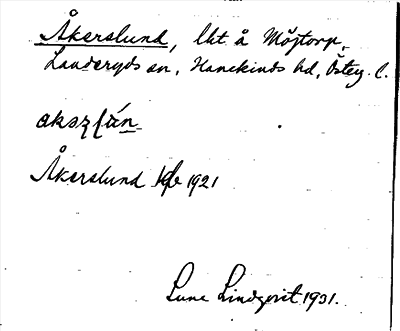 Åkerslund, lht å Möjtorp,
Landeryds sn, Hanekinds hd, Östg. l.
Åkerslund 1921
Sune Lindqvist 1931.